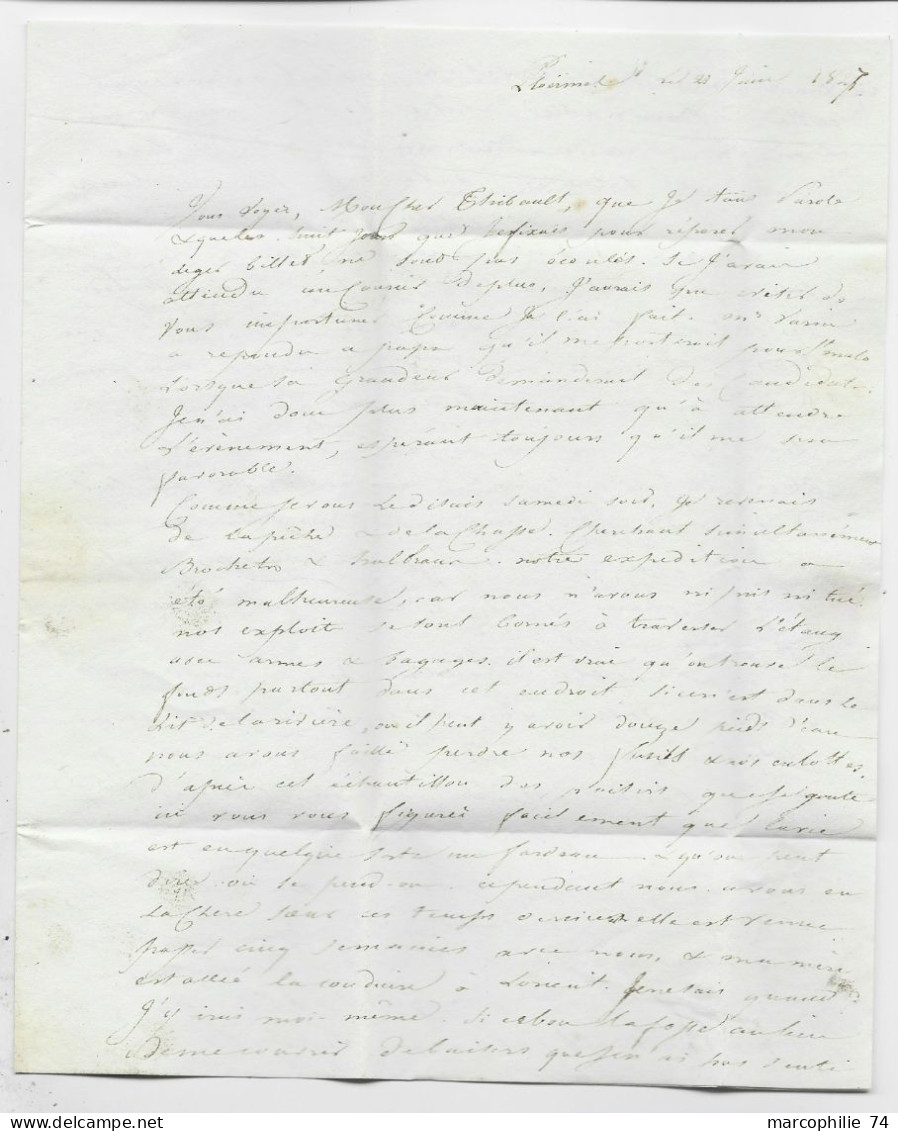 Ploërmel le 22 Juin 18
Vous voyez, Mon Cher Thibault, que Je tiens Parole
& que les huit Jours que Je fixais pour réparer mon
léger billet ne sont pas écoulés. Si J'avais
attendu un Courier De plus, J'aurais pu éviter de
Vous importuner Comme Je l'ai fait. Mr Varin
a repondu a papa qu'il me porterait pour St malo
Lorsque sa Grandeur Demanderait Des Candidats.
Je n'ai donc plus maintenant qu'à attendre
L'évènement, espérant toujours qu'il me sera
favorable.
Comme Je vous Le disais Samedi soir, Je revenais
De La pêche & de la Chasse. Cherchant simultanément
Brochets & halbrans. notre expedition a
été malheureuse, car nous n'avons ni pris ni tué
nos exploit se sont bornés à traverser L'étang
avec armes & bagages. il est vrai qu'on trouve le
fonds partout dans cet endroit, si ce n'est dans Le
Lit de la rivière, où il peut y avoir douze pieds d'eau
nous avons failli perdre nos fusils & nos culottes.
D'après cet échantillon des plaisirs que Je goute
ici vous vous figurez facilement que La vie
est en quelque sorte un fardeau & qu'on peut
dire où se pend-on. cependant nous avons eu
La Chere Sœur ces temps derniers elle est venue
passer cinq semaines avec nous, & ma mère
est allée la conduire à Lorient. Je ne sais quand
J'y irai moi-même. Si au lieu
De me de baisers que Je n'ai pas senti
marcophilie 74